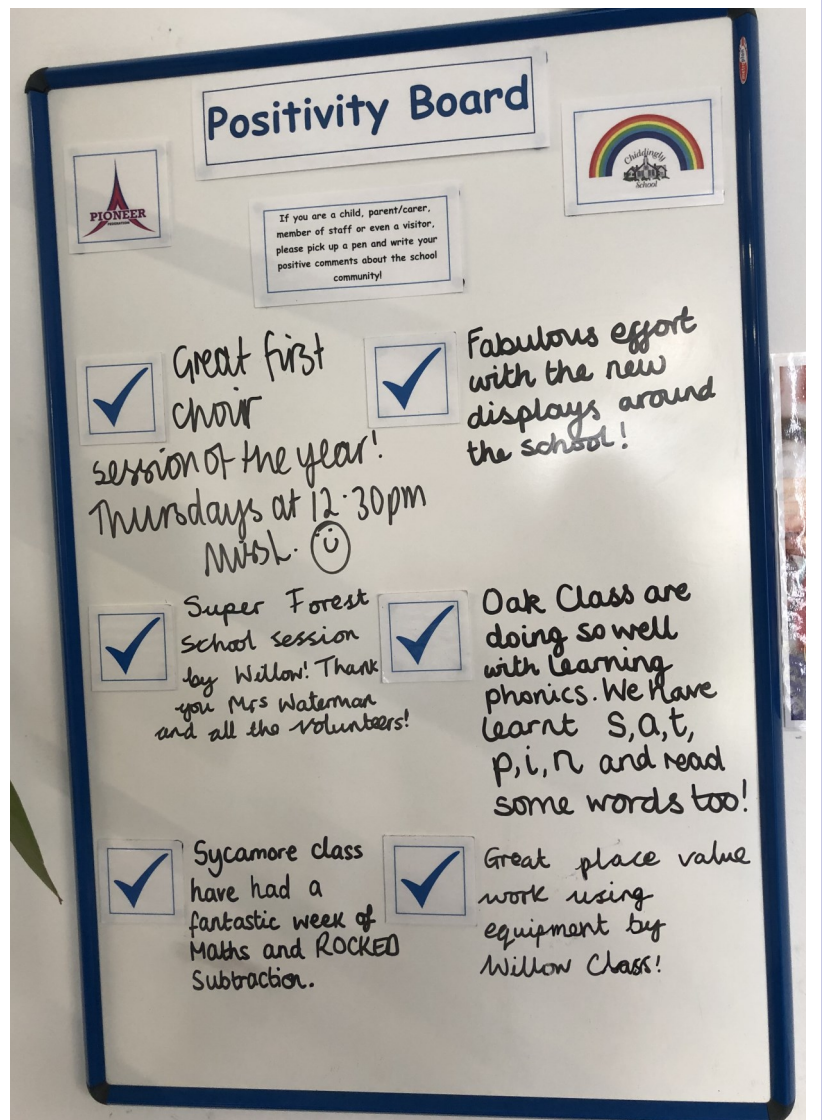 Positivity Board
PIONEER
FEDERATION
Chiddingly
School
If you are a child, parent/carer,
member of staff or even a visitor,
please pick up a pen and write your
positive comments about the school
community!
Great first
choir
session of the year!
Thursdays at 12.30pm
Miss L.
Fabulous effort
with the new
displays around
the school!
Super Forest
school session
by Willow! Thank
you Mrs Waterman
and all the volunteers!
Oak Class are
doing so well
with learning
phonics. We Have
learnt s, a, t,
p, i, n and read
some words too!
Sycamore class
have had a
fantastic week of
Maths and ROCKED
Subtraction.
Great place value
work using
equipment by
Willow Class!